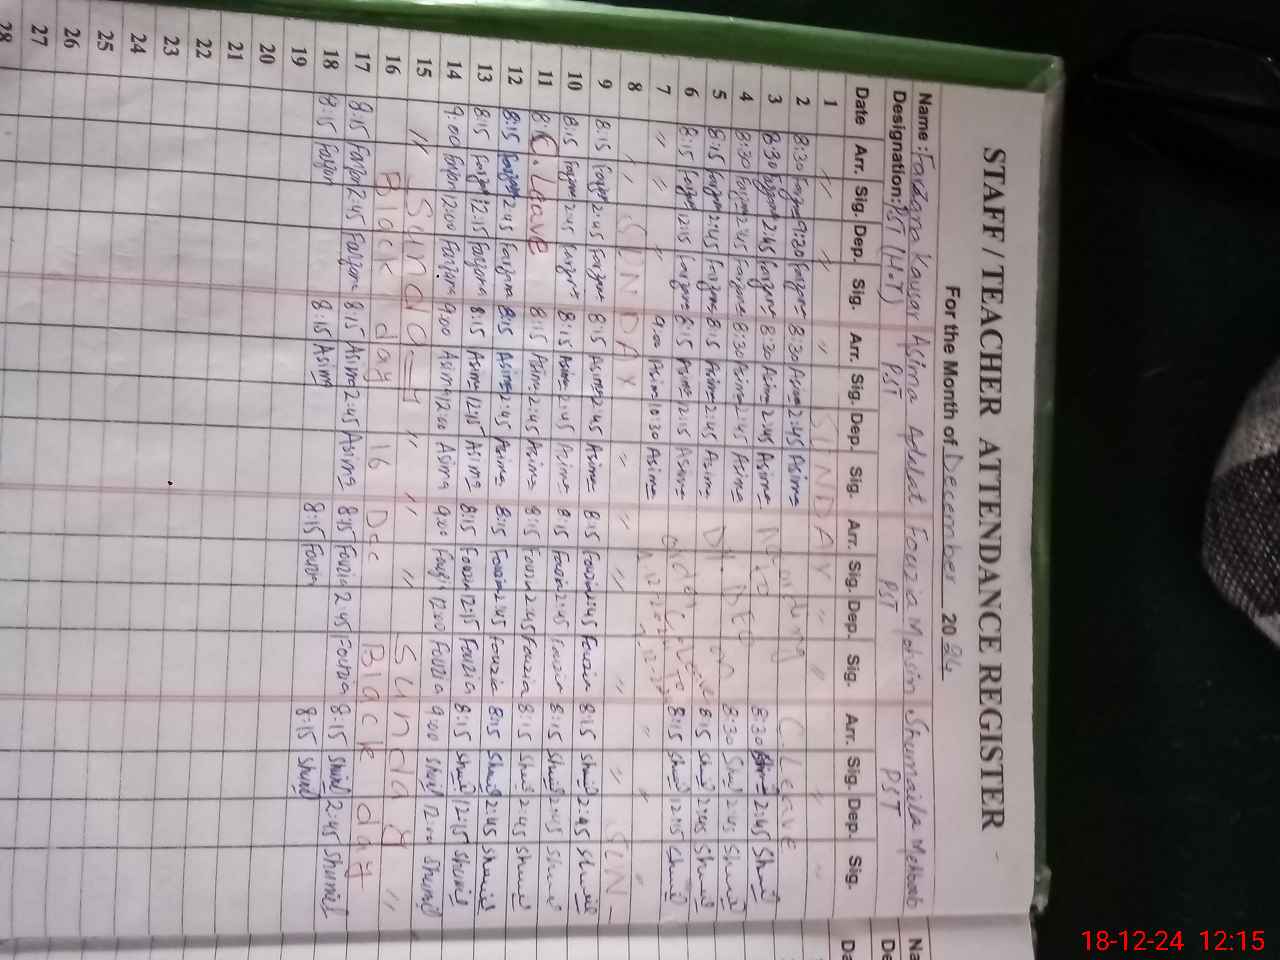 STAFF / TEACHER ATTENDANCE REGISTER
For the Month of December 2024
Name : Farzana Kausar Asima Adalat Fouzia Mohsin Shumaila Mehboob
Designation: PST (H.T) PST PST PST
Date Arr. Sig. Dep. Sig. Arr. Sig. Dep. Sig. Arr. Sig. Dep. Sig. Arr. Sig. Dep. Sig.
1 " " " " SUNDAY " " " "
2 8:30 Farzana 9:20 Farzana 8:30 Asima 2:45 Asima C. Leave
3 8:30 Farzana 2:45 Farzana 8:30 Asima 2:45 Asima 8:30 Shumil 2:45 Shumil
4 8:30 Farzana 2:45 Farzana 8:30 Asima 2:45 Asima 8:30 Shumil 2:45 Shumil
5 8:15 Farzana 2:45 Farzana 8:15 Asima 2:45 Asima 8:15 Shumil 2:45 Shumil
6 8:15 Farzana 12:15 Farzana 8:15 Asima 12:15 Asima 8:15 Shumil 12:15 Shumil
7 " " " 9:00 Asima 10:30 Asima " "
8 " " SUNDAY " " " " " SUN-
9 8:15 Farzana 2:45 Farzana 8:15 Asima 2:45 Asima 8:15 Fouzia 2:45 Fouzia 8:15 Shumil 2:45 Shumil
10 8:15 Farzana 2:45 Farzana 8:15 Asima 2:45 Asima 8:15 Fouzia 2:45 Fouzia 8:15 Shumil 2:45 Shumil
11 8:15 C. Leave 8:15 Asima 2:45 Asima 8:15 Fouzia 2:45 Fouzia 8:15 Shumil 2:45 Shumil
12 8:15 Farzana 2:45 Farzana 8:15 Asima 2:45 Asima 8:15 Fouzia 2:45 Fouzia 8:15 Shumil 2:45 Shumil
13 8:15 Farzana 12:15 Farzana 8:15 Asima 12:15 Asima 8:15 Fouzia 12:15 Fouzia 8:15 Shumil 12:15 Shumil
14 9:00 Farzana 12:00 Farzana 9:00 Asima 12:00 Asima 9:00 Fouzia 12:00 Fouzia 9:00 Shumil 12:00 Shumil
15 " Sunday " " " Sunday "
16 Black day 16 Dec Black day
17 8:15 Farzana 2:45 Farzana 8:15 Asima 2:45 Asima 8:15 Fouzia 2:45 Fouzia 8:15 Shumil 2:45 Shumil
18 8:15 Farzana 8:15 Asima 8:15 Fouzia 8:15 Shumil
19
20
21
22
23
24
25
26
27
28
Na
De
Da
18-12-24 12:15